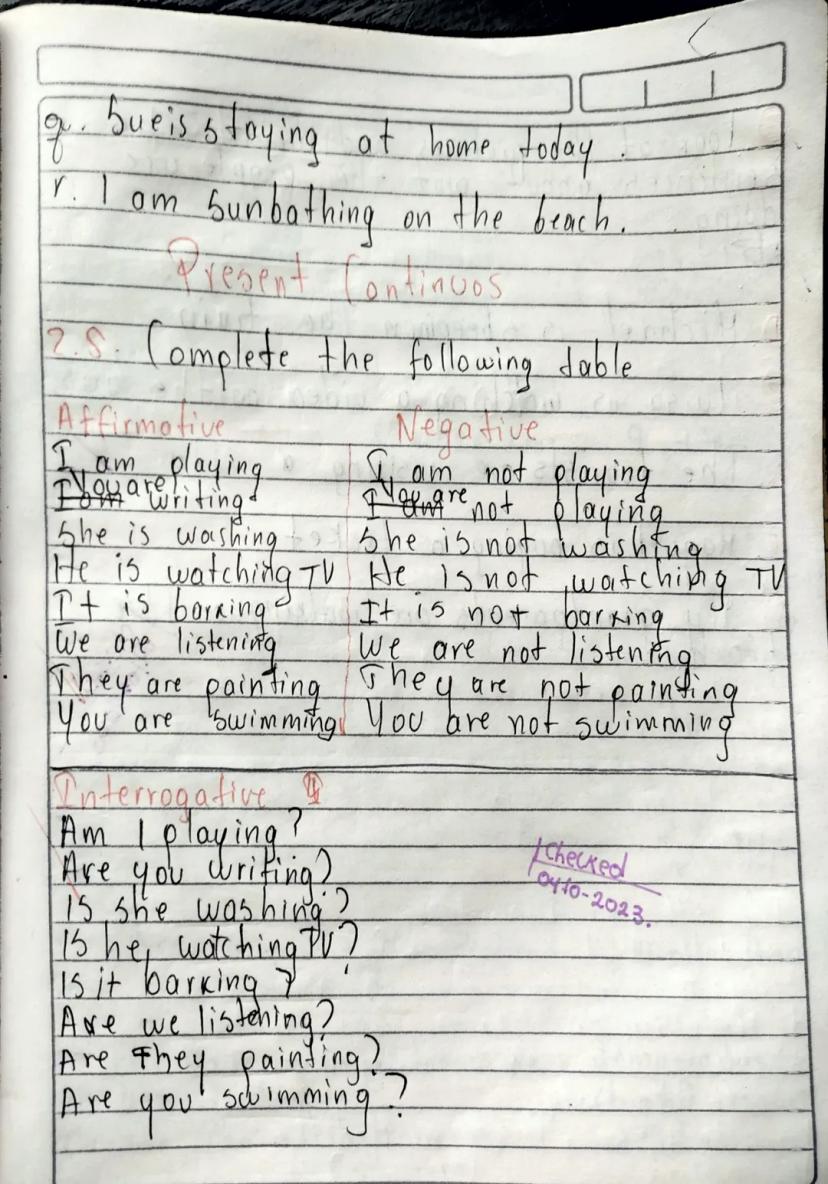 q. Sue is staying at home today.
r. I am sunbathing on the beach.
Present Continuos
2.S. Complete the following table
Affirmative Negative
I am playing I am not playing
You are writing You are not playing
She is washing She is not washing
He is watching TV He is not watching TV
It is barking It is not barking
We are listening We are not listening
They are painting They are not painting
You are swimming You are not swimming
Interrogative
Am I playing?
Are you writing?
Is she washing?
Is he, watching TV?
Is it barking?
Are we listening?
Are They painting?
Are you swimming?
Checked
04-10-2023.